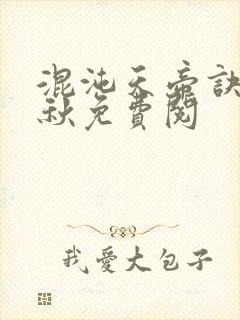 混沌天帝訣
秋免費閱
我愛大包子